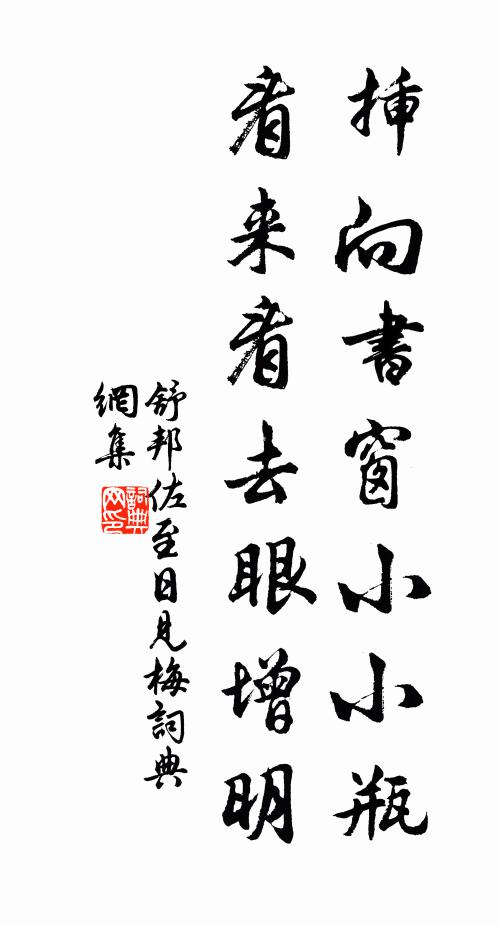 挿向書窗小小瓶
看来看去眼增明
舒邦佐至日見梅詞典
網集
詞典网印